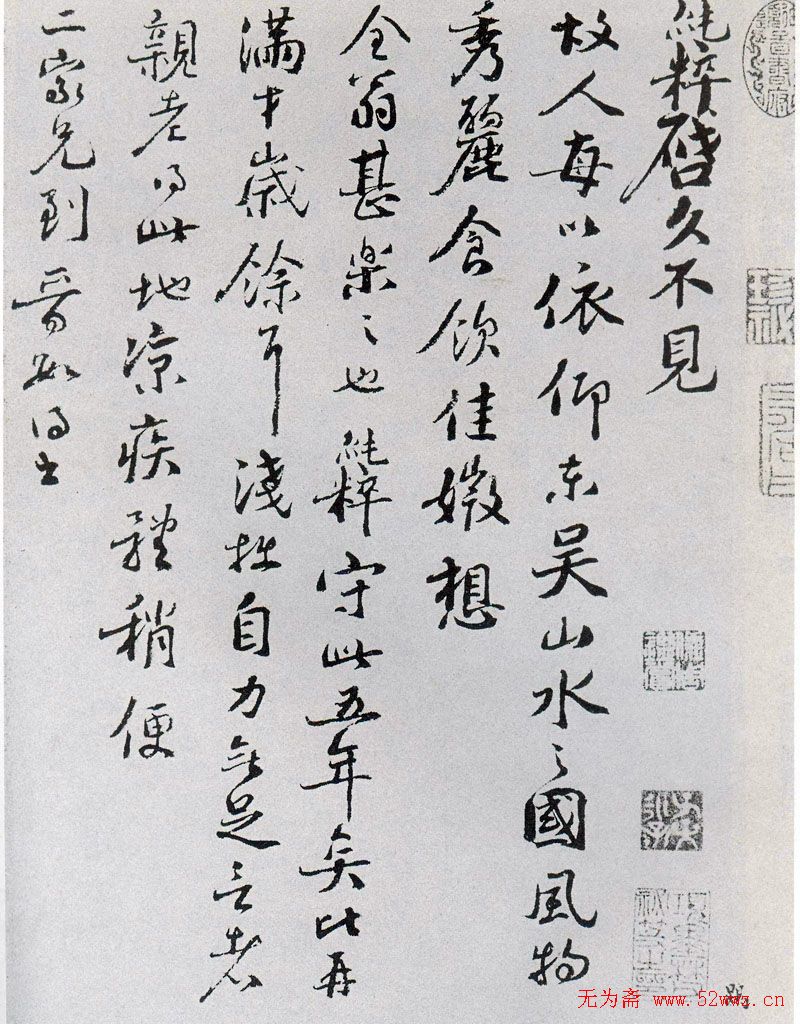 純粹啓久不見
故人每以依仰東吴山水之國風物
秀麗食飲佳嫩想
仝翁甚樂之也純粹守此五年矣比再
滿才歲餘耳淺拙自力無足言者
親老得此地凉疾稍便
二家兄到晉如得也
无为斋 www.52wwz.cn